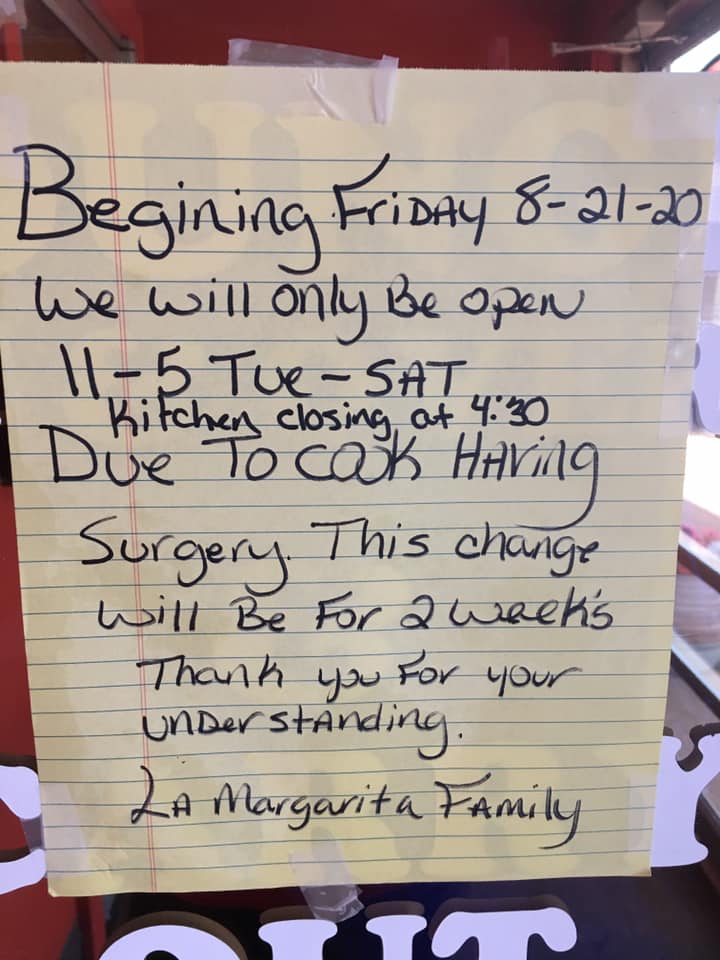 Begining Friday 8-21-20
We will only Be open
11-5 Tue-SAT
Kitchen closing at 4:30
Due To cook Having
Surgery. This change
will Be For 2 week's
Thank you For your
understanding.
LA Margarita Family
OUT